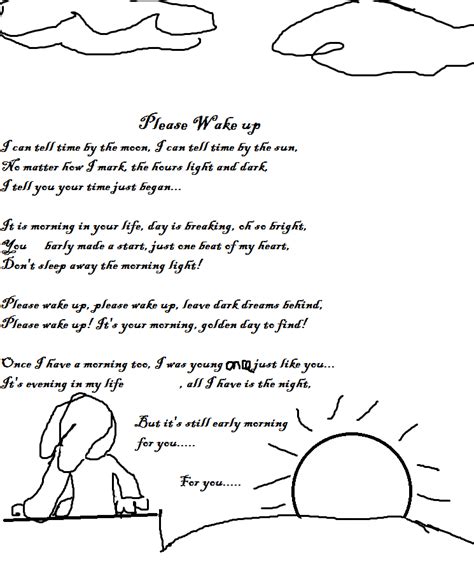 Please Wake up
I can tell time by the moon, I can tell time by the sun,
No matter how I mark, the hours light and dark,
I tell you your time just began...
It is morning in your life, day is breaking, oh so bright,
You barly made a start, just one beat of my heart,
Don't sleep away the morning light!
Please wake up, please wake up, leave dark dreams behind,
Please wake up! It's your morning, golden day to find!
Once I have a morning too, I was young just like you...
It's evening in my life , all I have is the night,
But it's still early morning
for you.....
For you.....